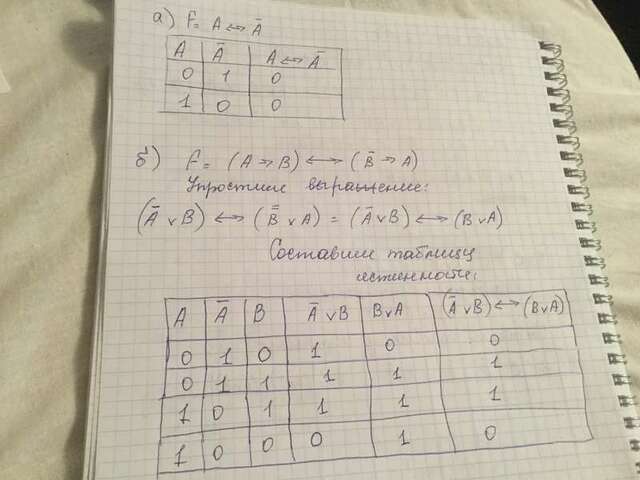 а) F = A ↔ Ā
A Ā A ↔ Ā
0 1 0
1 0 0
б) F = (A → B) ↔ (B̄ → A)
Упростим выражение:
(Ā ∨ B) ↔ (B̿ ∨ A) = (Ā ∨ B) ↔ (B ∨ A)
Составим таблицу
истинности:
A Ā B Ā ∨ B B ∨ A (Ā ∨ B) ↔ (B ∨ A)
0 1 0 1 0 0
0 1 1 1 1 1
1 0 1 1 1 1
1 0 0 0 1 0